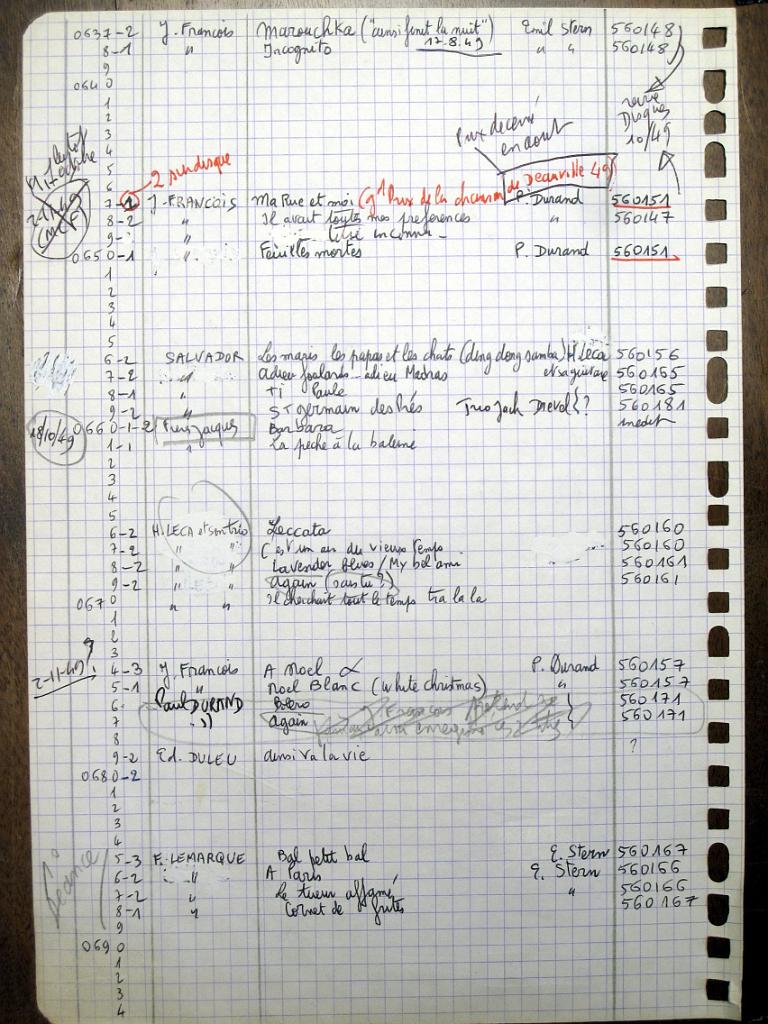 0637-2 J. François Marouchka ("ainsi finit la nuit") Emil Stern 560148
8-1 " Incognito 17.8.49 " " 560148
9
0640
1
2 revue
3 Disques
4 Prix décerné 10/49
5 en aout
6 2 sur disque
7-1 J. FRANCOIS Ma Rue et moi (gd Prix de la chanson de Deauville 49) P. Durand 560151
21.9.49 (MCF)
8-2 " Il avait toutes mes préférences " 560147
9- " inconnu -
0650-1 " Feuilles mortes P. Durand 560151
1
2
3
4
5
6-2 SALVADOR Les maris les papas et les chats (ding dong samba) H Leca 560156
7-2 " Adieu foulards - adieu Madras et sa guitare 560165
8-1 " Ti Paule 560165
9-2 " St germain des Prés Trio Jack Dieval { ? 560181
18/10/49 0660-1-2 Pierre Jacques Barbara inédit
1-1 " La peche à la baleine
2
3
4
5
6-2 H. LECA et son trio Leccata 560160
7-2 " " C'est un air du vieux temps 560160
8-2 " " Lavender blues / My bel ami 560161
9-2 " " Again (sais tu ?) 560161
0670 " " Il cherchait tout le temps tra la la
1
2
3
2-11-49 4-3 J. François A Noel P. Durand 560157
5-1 " Noel Blanc (white christmas) " 560157
6- Paul DURAND Boléro 560171
7 " Again 560171
8
9-2 Ed. DULEU Ainsi va la vie ?
0680-2
1
2
3
4
5-3 F. LEMARQUE Bal petit bal E. Stern 560167
6-2 " A Paris E. Stern 560166
7-2 " Le tueur affamé " 560166
8-1 " Cornet de frites 560167
Séance
9
0690
1
2
3
4